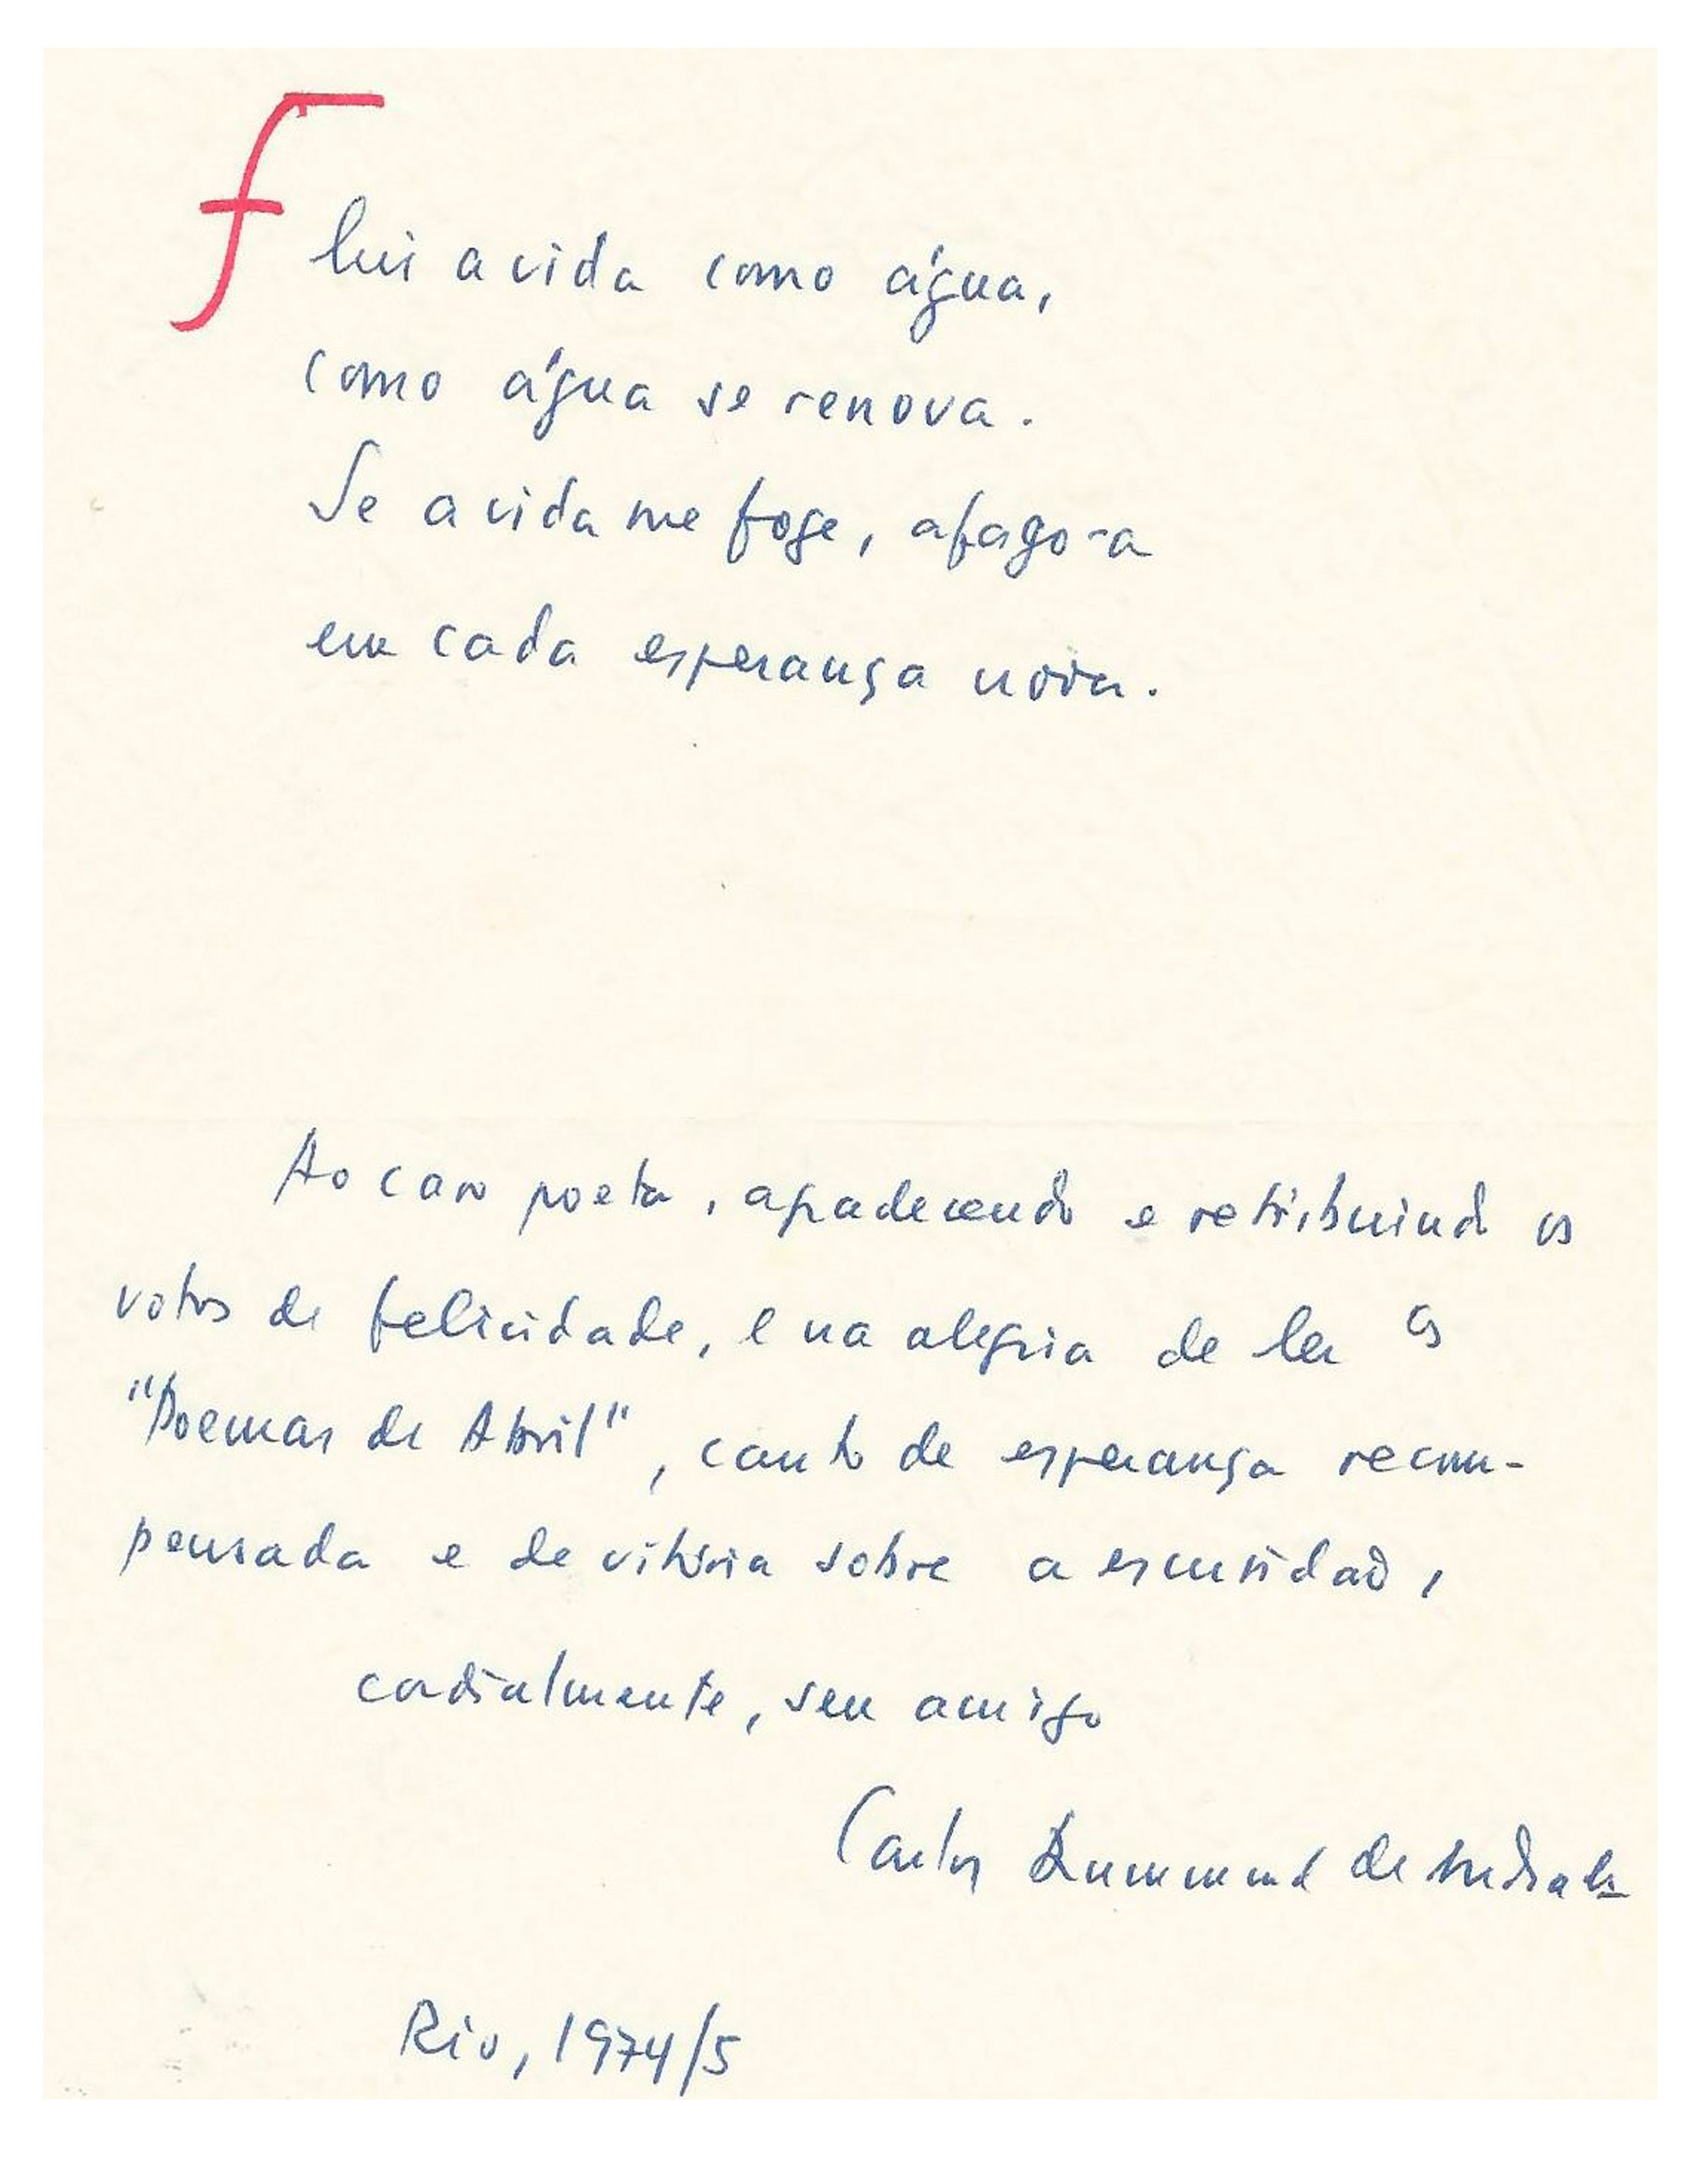 Flui a vida como água,
como água se renova.
Se a vida me foge, afago-a
em cada esperança nova.
Ao caro poeta, agradecendo e retribuindo os
votos de felicidade, e na alegria de ler os
"Poemas de Abril", canto de esperança recom-
pensada e de vitória sobre a escuridão,
cordialmente, seu amigo
Carlos Drummond de Andrade
Rio, 1974/5